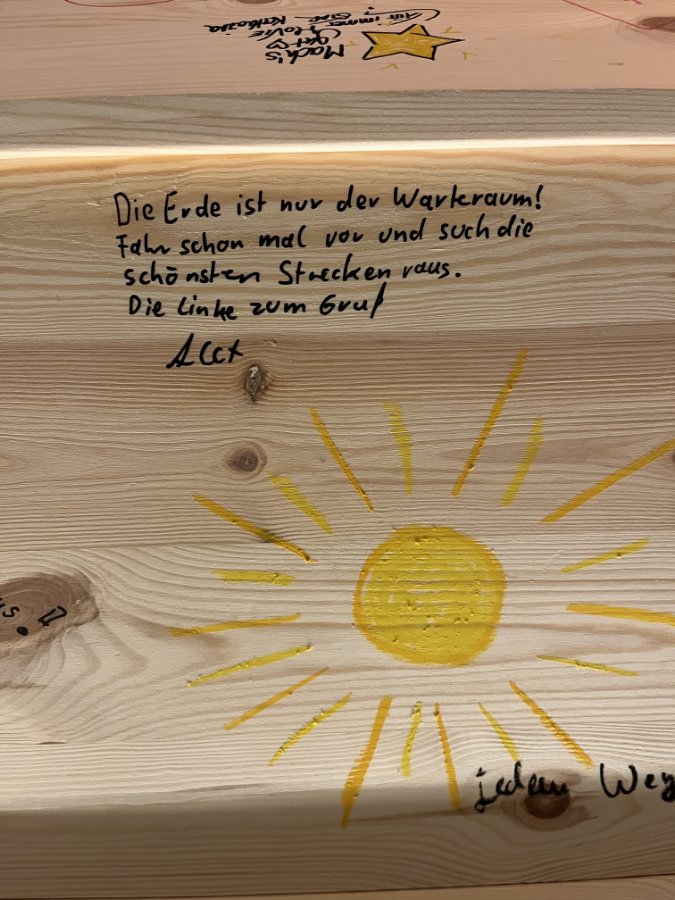 Mach's
gut ♡
Für immer
Die Erde ist nur der Warteraum!
Fahr schon mal vor und such die
schönsten Strecken raus.
Die Linke zum Gruß
jedem Weg